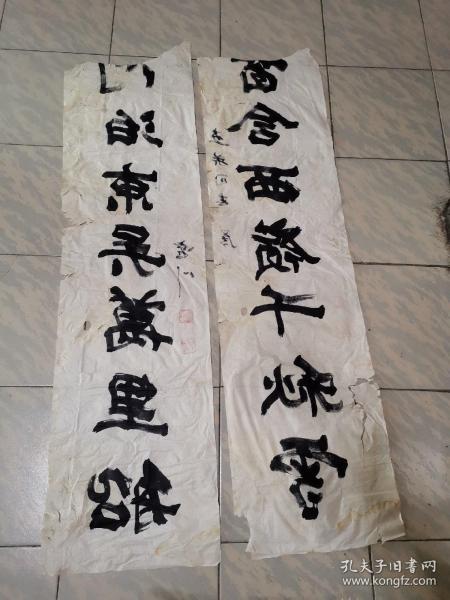 窗含西嶺千秋雪
门泊東吳萬里船
孔夫子旧书网
www.kongfz.com